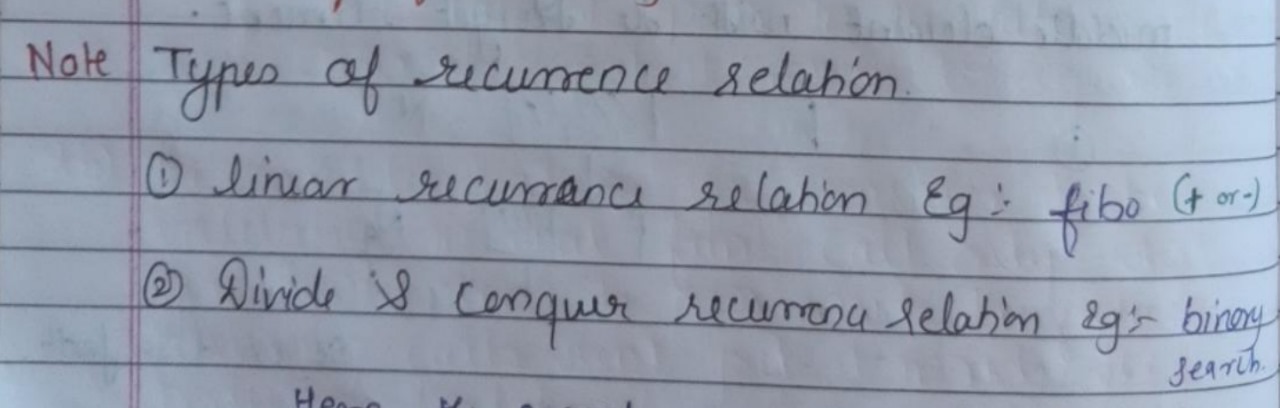 Note Types of recurrence relation.
① linear recurrance relation Eg :- fibo (+ or -)
② Divide & Conquer recurrence relation eg :- binary
search.